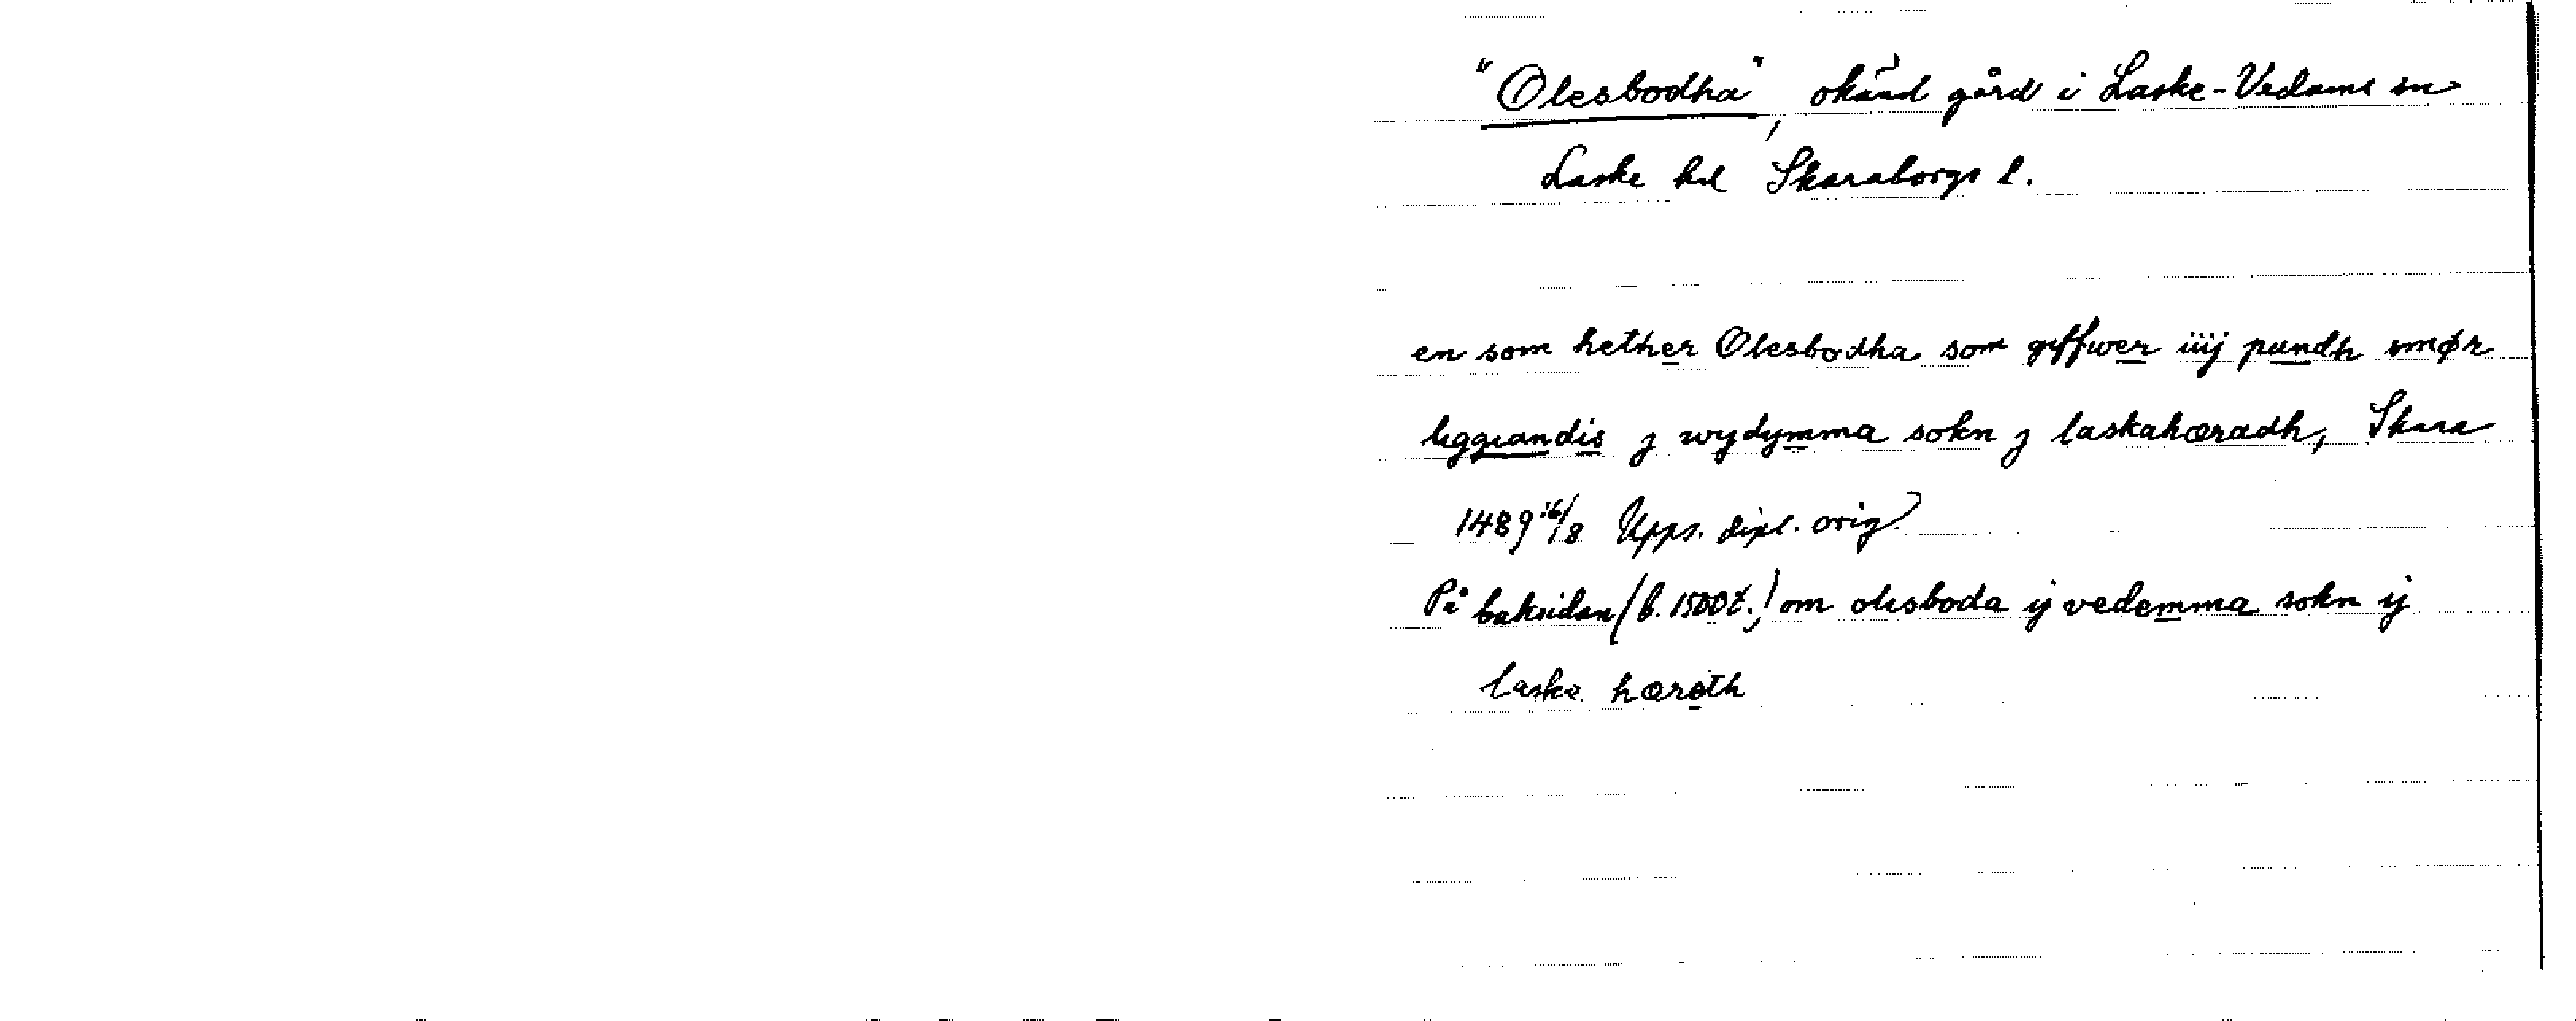 "Olesbodha", okänd gård i Laske-Vedums sn
Laske hd Skaraborgs l.
en som hether Olesbodha som gyffwer iiij pundh smør
liggiandis j wydymma sokn j laskahæradh, Skara
1489 16/8 Upps. dipl. orig.
På baksidan (b. 1500 t.) om olisboda ij vedemma sokn ij
laske hæroth